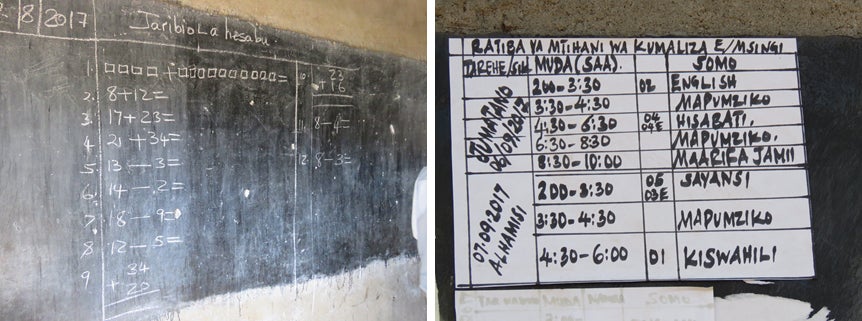 /8/2017 Jaribio La hesabu
1. □□□□+□□□□□□□□□□=
2. 8+12=
3. 17+23=
4. 21+34=
5. 13-3=
6. 14-2=
7. 18-9=
8. 12-5=
9 34
+ 20
10. 23
+ 16
11. 8-4=
12. 8-3=
RATIBA YA MTIHANI WA KUMALIZA E/MSINGI
TAREHE/SIK MUDA (SAA). SOMO
JUMATANO 06/09/2017
200-3:30 02 ENGLISH
3:30-4:30 MAPUMZIKO
4:30-6:30 04 04E HISABATI,
6:30-8:30 MAPUMZIKO,
8:30-10:00 MAARIFA JAMII
07.09.2017 ALHAMISI
200-3:30 05 03E SAYANSI
3:30-4:30 MAPUMZIKO
4:30-6:00 01 KISWAHILI
MUDA SOMO